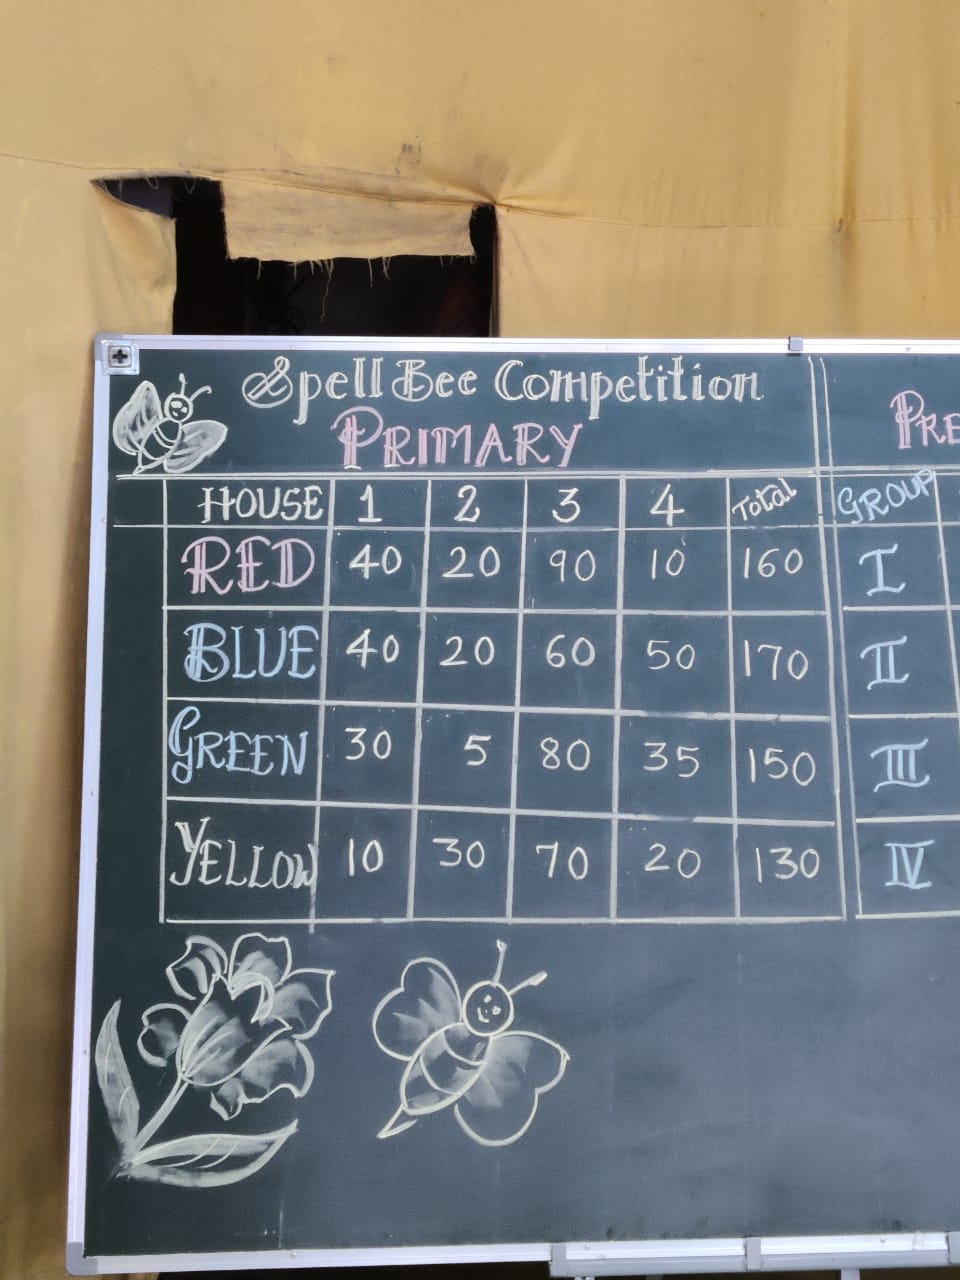 Spell Bee Competition
PRIMARY
HOUSE 1 2 3 4 Total GROUP
RED 40 20 90 10 160 I
BLUE 40 20 60 50 170 II
GREEN 30 5 80 35 150 III
YELLOW 10 30 70 20 130 IV